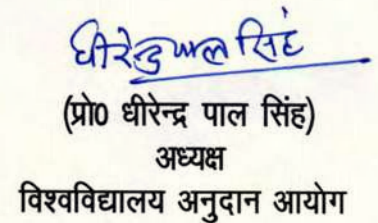 धीरेन्द्र पाल सिंह
(प्रो० धीरेन्द्र पाल सिंह)
अध्यक्ष
विश्वविद्यालय अनुदान आयोग